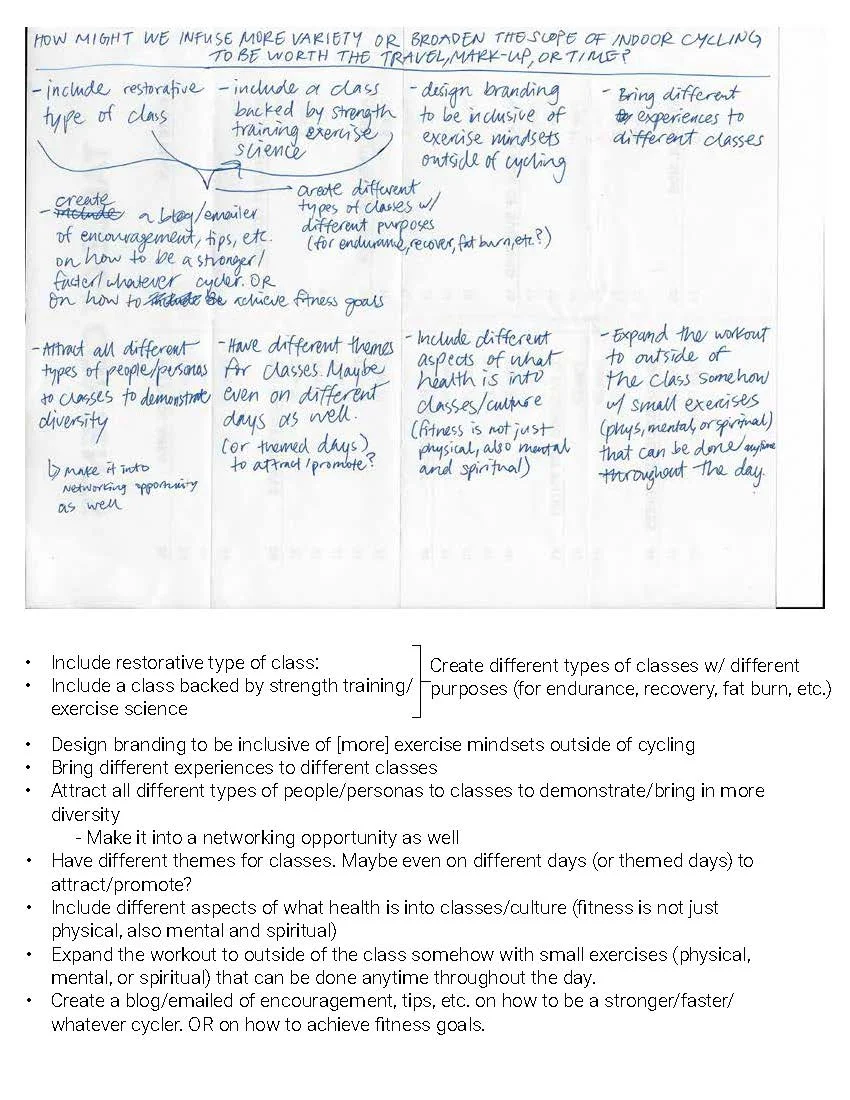 HOW MIGHT WE INFUSE MORE VARIETY OR BROADEN THE SCOPE OF INDOOR CYCLING
TO BE WORTH THE TRAVEL, MARK-UP, OR TIME?
- include restorative
type of class
- include a class
backed by strength
training exercise
science
- design branding
to be inclusive of
exercise mindsets
outside of cycling
- Bring different
experiences to
different classes
create different
types of classes w/
different purposes
(for endurance, recover, fat burn, etc?)
create
- include a blog/emailer
of encouragement, tips, etc.
on how to be a stronger/
faster/whatever cycler. OR
on how to achieve fitness goals
- Attract all different
types of people/personas
to classes to demonstrate
diversity
↳ make it into
networking opportunity
as well
- Have different themes
for classes. Maybe
even on different
days as well.
(or themed days)
to attract/promote?
- Include different
aspects of what
health is into
classes/culture
(fitness is not just
physical, also mental
and spiritual)
- Expand the workout
to outside of
the class somehow
w/ small exercises
(phys, mental, or spiritual)
that can be done/anytime
throughout the day.
• Include restorative type of class:
• Include a class backed by strength training/
exercise science
Create different types of classes w/ different
purposes (for endurance, recovery, fat burn, etc.)
• Design branding to be inclusive of [more] exercise mindsets outside of cycling
• Bring different experiences to different classes
• Attract all different types of people/personas to classes to demonstrate/bring in more
diversity
- Make it into a networking opportunity as well
• Have different themes for classes. Maybe even on different days (or themed days) to
attract/promote?
• Include different aspects of what health is into classes/culture (fitness is not just
physical, also mental and spiritual)
• Expand the workout to outside of the class somehow with small exercises (physical,
mental, or spiritual) that can be done anytime throughout the day.
• Create a blog/emailed of encouragement, tips, etc. on how to be a stronger/faster/
whatever cycler. OR on how to achieve fitness goals.